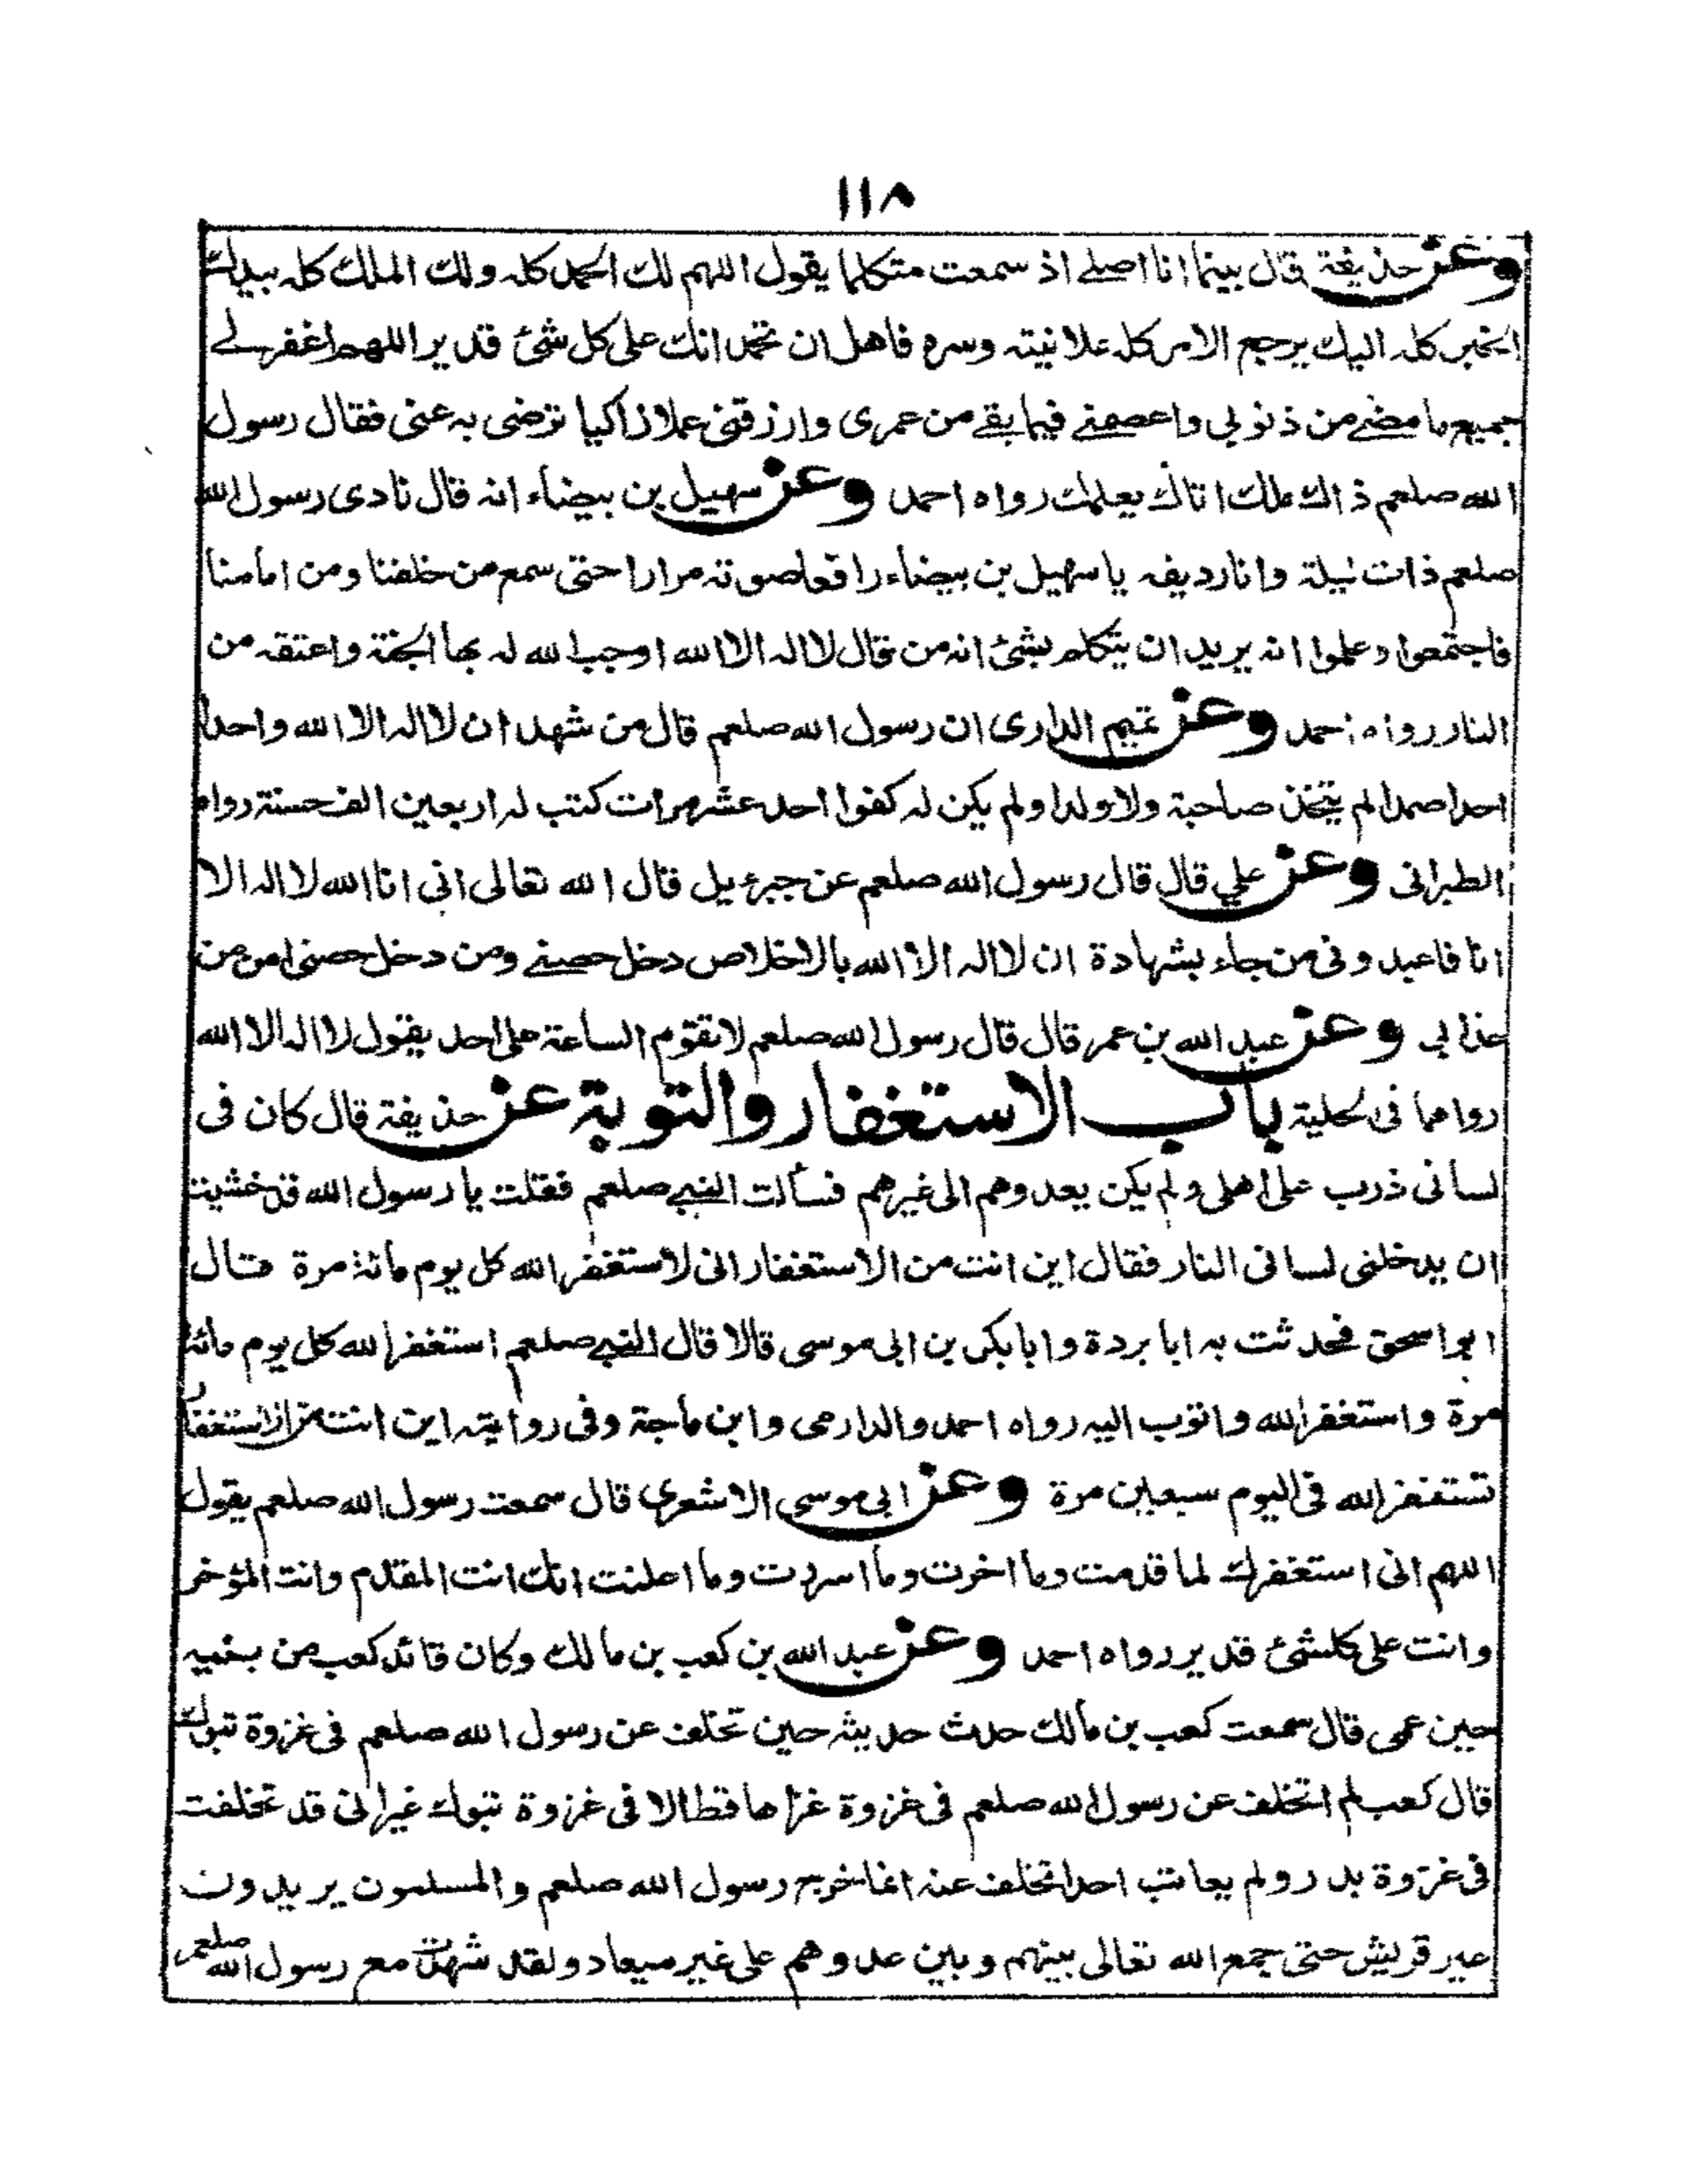 ١١٨
وعن حذيفة قال بينما انا اصلے اذ سمعت متكلما يقول اللهم لك الحمد كله ولك الملك كله بيدك
الخير كله اليك يرجع الامر كله علانيته وسره فاهل ان تحمد انك على كل شئ قدير اللهم اغفر لے
جميع ما مضے من ذنوبي واعصمنے فيما بقے من عمرى وارزقنى عملا زاكيا ترضى به عنى فقال رسول
الله صلعم ذاك ملك اتاك يعلمك رواه احمد وعن سهيل بن بيضاء انه قال نادى رسول الله
صلعم ذات ليلة وانا رديفه يا سهيل بن بيضاء رافعا صوته مرارا حتى سمع من خلفنا ومن امامنا
فاجتمعوا وعلموا انه يريد ان يتكلم بشئ انه من قال لا اله الا الله اوجب الله له بها الجنة واعتقه من
النار رواه احمد وعن تميم الدارى ان رسول الله صلعم قال من شهد ان لا اله الا الله واحدا
احدا صمدا لم يتخذ صاحبة ولا ولدا ولم يكن له كفوا احد عشر مرات كتب له اربعين الف حسنة رواه
الطبرانى وعن علي قال قال رسول الله صلعم عن جبرءيل قال الله تعالى انى انا الله لا اله الا
انا فاعبدونى من جاء بشهادة ان لا اله الا الله بالاخلاص دخل حصنے ومن دخل حصنى امن من
عذابي وعن عبد الله بن عمر قال قال رسول الله صلعم لا تقوم الساعة على احد يقول لا اله الا الله
رواهما فى الحلية باب الاستغفار والتوبة عن حذيفة قال كان فى
لسانى ذرب على اهلى ولم يكن يعدوهم الى غيرهم فسألت النبے صلعم فقلت يا رسول الله قد خشيت
ان يدخلنى لسانى النار فقال اين انت من الاستغفار انى لاستغفر الله كل يوم مائة مرة قال
ابو اسحق فحدثت به ابا بردة وابا بكر بن ابى موسى قالا قال النبے صلعم استغفر الله كل يوم مائة
مرة واستغفر الله واتوب اليه رواه احمد والدارمى وابن ماجة وفى روايته اين انت من الاستغفار
تستغفر الله فى اليوم سبعين مرة وعن ابى موسى الاشعرى قال سمعت رسول الله صلعم يقول
اللهم انى استغفرك لما قدمت وما اخرت وما اسررت وما اعلنت انك انت المقدم وانت المؤخر
وانت على كلشئ قدير رواه احمد وعن عبد الله بن كعب بن مالك وكان قائد كعب من بنيه
حين عمى قال سمعت كعب بن مالك حدث حديثه حين تخلف عن رسول الله صلعم فى غزوة تبوك
قال كعب لم اتخلف عن رسول الله صلعم فى غزوة غزاها قط الا فى غزوة تبوك غير انى قد تخلفت
فى غزوة بدر ولم يعاتب احدا تخلف عنه انما خرج رسول الله صلعم والمسلمون يريدون
عير قريش حتى جمع الله تعالى بينهم وبين عدوهم على غير ميعاد ولقد شهدت مع رسول الله صلعم